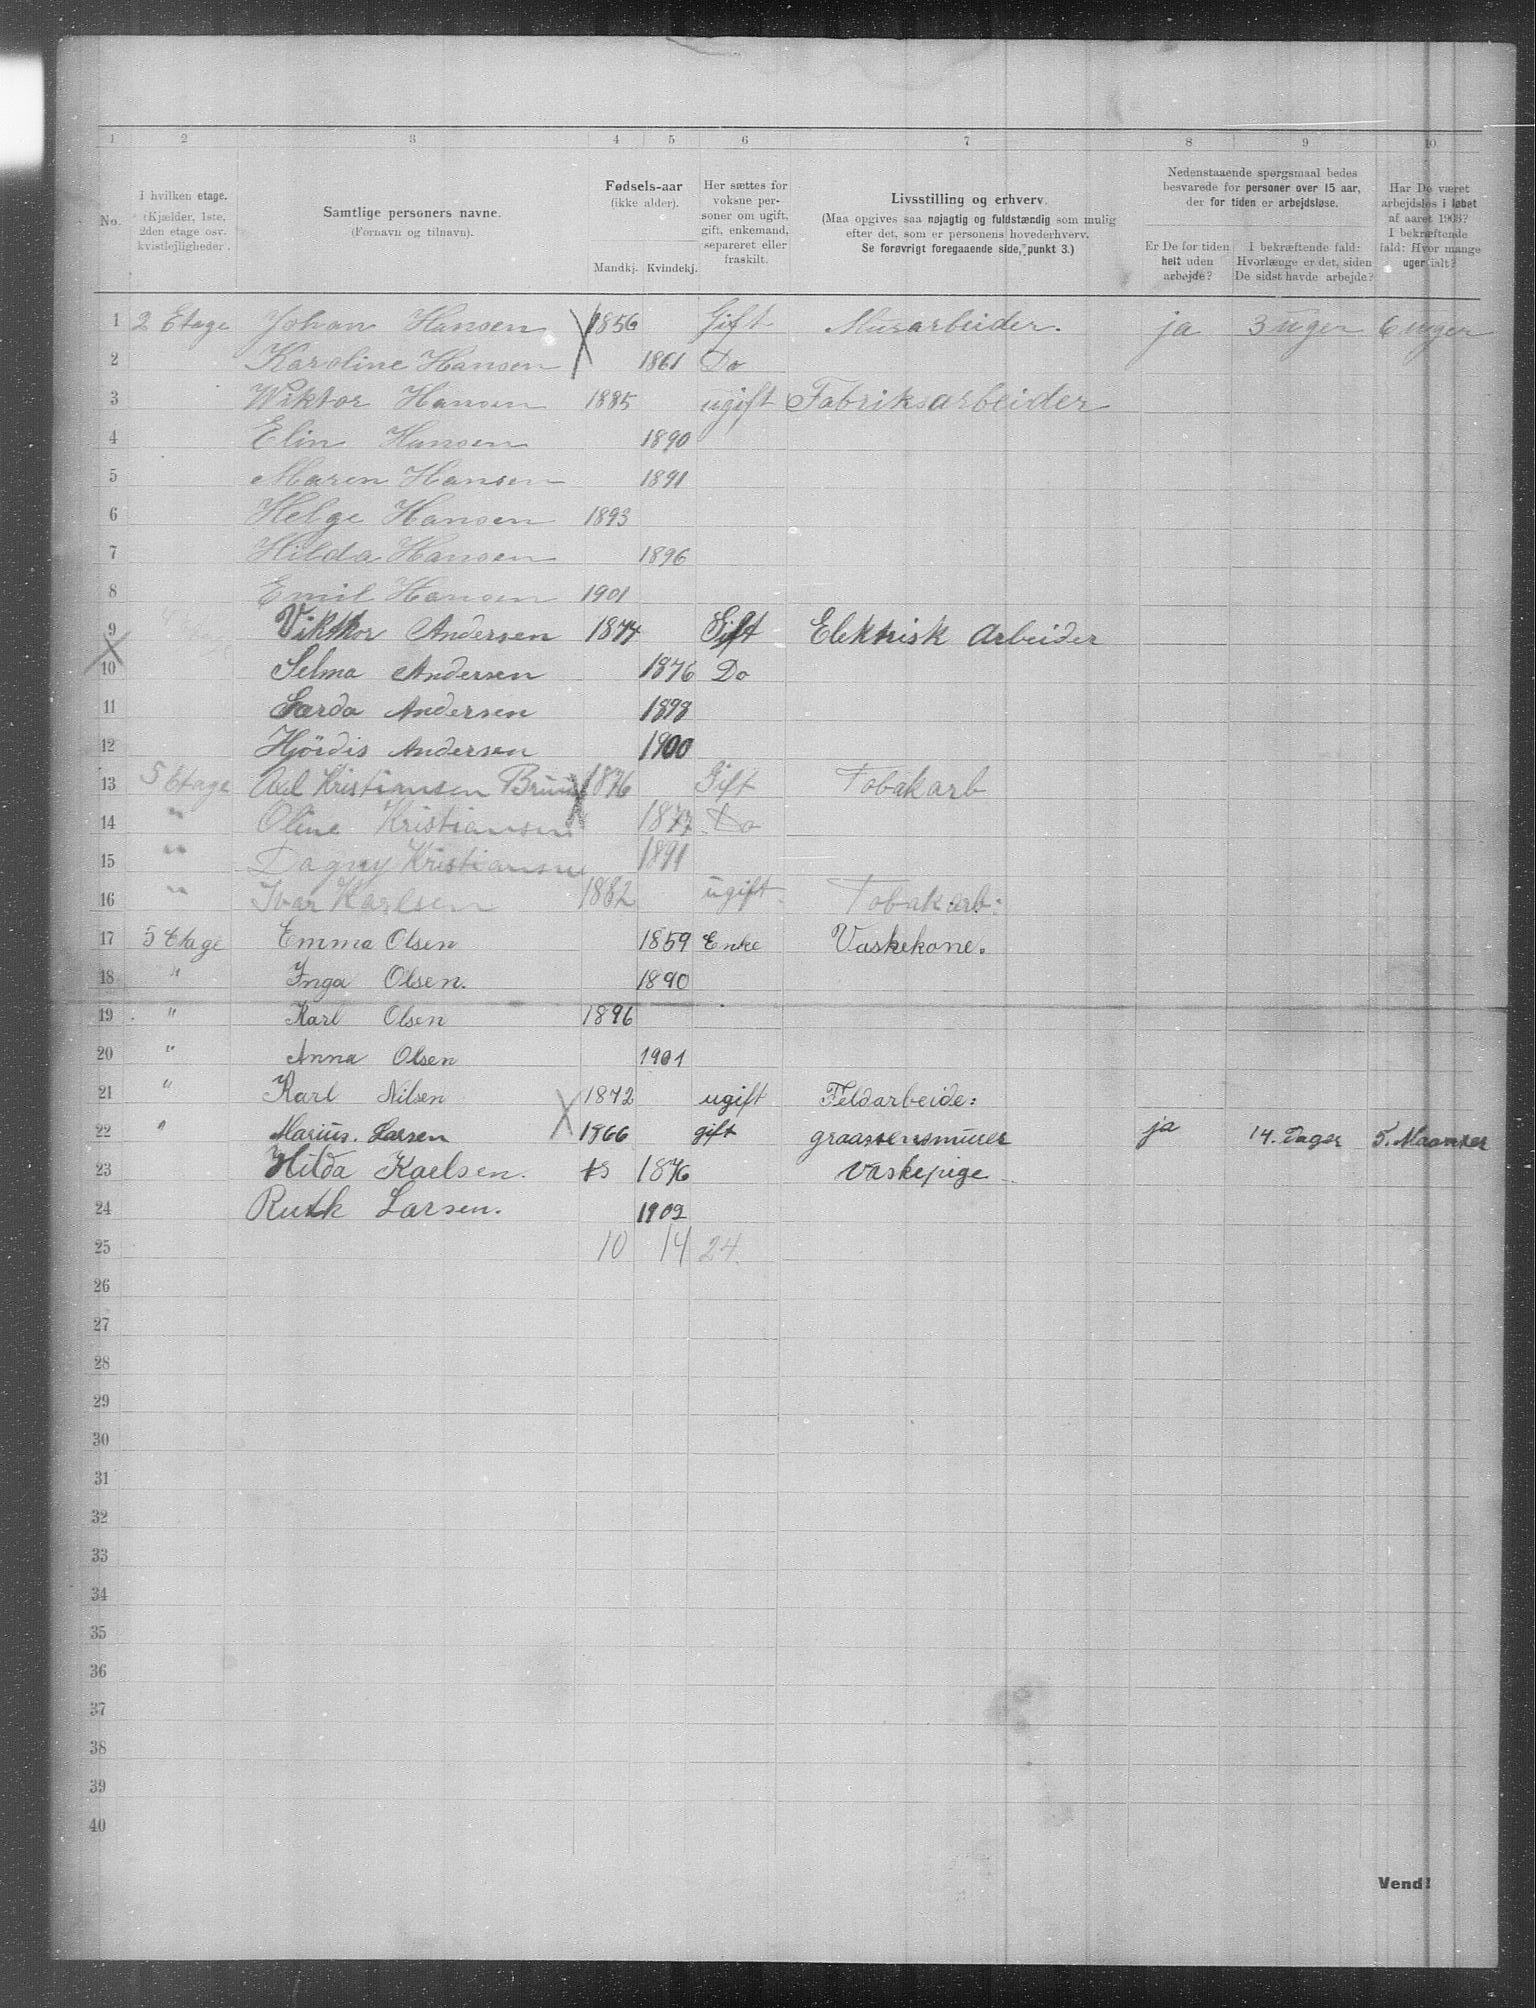 1 2 3 4 5 6 7 8 9 10
No.
I hvilken etage. (Kjælder, 1ste, 2den etage osv. kvistlejligheder.
Samtlige personers navne. (Fornavn og tilnavn).
Fødsels-aar (ikke alder).
Mandkj. Kvindekj.
Her sættes for voksne personer om ugift, gift, enkemand, separeret eller fraskilt.
Livsstilling og erhverv. (Maa opgives saa nøjagtig og fuldstændig som mulig efter det, som er personens hovederhverv. Se forøvrigt foregaaende side, punkt 3.)
Nedenstaaende spørgsmaal bedes besvarede for personer over 15 aar, der for tiden er arbejdsløse.
Er De for tiden helt uden arbejde?
I bekræftende fald: Hvorlænge er det, siden De sidst havde arbejde?
Har De været arbejdsløs i løbet af aaret 1903? I bekræftende fald: Hvor mange uger ialt?
1 2 Etage Johan Hansen 1856 Gift Murarbeider. ja 3 uger 6 uger
2 Karoline Hansen 1861 Do
3 Wiktor Hansen 1885 ugift Fabriksarbeider
4 Elin Hansen 1890
5 Maren Hansen 1891
6 Helge Hansen 1893
7 Hilda Hansen 1896
8 Emil Hansen 1901
9 Vikttor Andersen 1877 Gift Elektrisk Arbeider
10 Selma Andersen 1876 Do
11 Gærda Andersen 1898
12 Hjördis Andersen 1900
13 5 Etage Kristiansen 1876 Gift Tobakarb
14 " Oline Kristiansen 1877 Do
15 " Dagny Kristiansen 1891
16 " Ivar Karlsen 1882 ugift Tobakarb:
17 5 Etage Emma Olsen 1859 Enke Vaskekone.
18 " Inga Olsen. 1890
19 " Karl Olsen 1896
20 " Anna Olsen 1901
21 " Karl Nilsen 1872 ugift Feldarbeide:
22 " Marius. Larsen 1866 gift ja 14. Dager 5. Maaneder
23 Hilda Karlsen. 1876 Vaskepige
24 Ruth Larsen. 1902
25 10 14 24.
26
27
28
29
30
31
32
33
34
35
36
37
38
39
40
Vend!